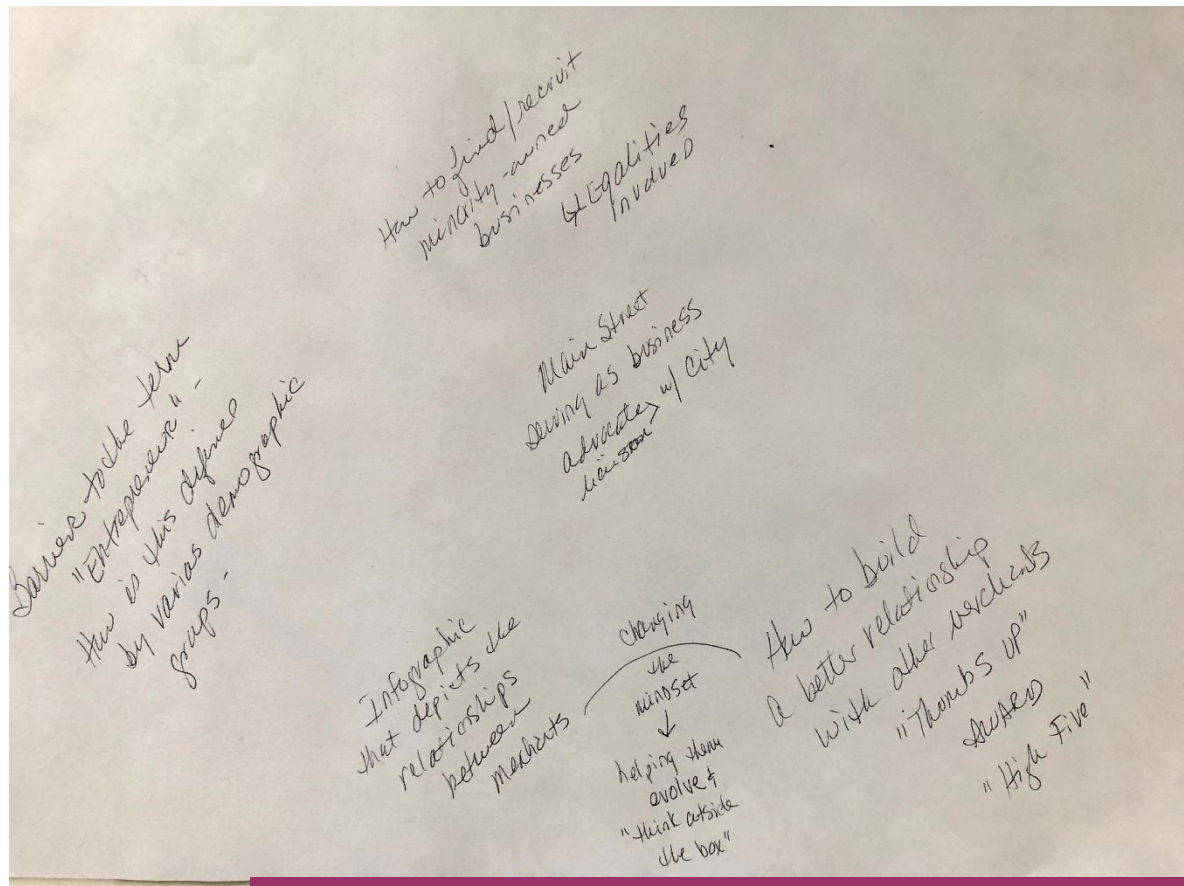 How to find/recruit
minority-owned
businesses
↳ LEgalities
involved
Main Street
serving as business
advocate> w/ City
liaison
Barriers to the term
"Entrepreneur" -
How is this defined
by various demographic
groups -
Infographic
that depicts the
relationships
between
merchants
changing
the
mindset
↓
helping them
evolve &
"think outside
the box"
How to build
a better relationship
with other merchants
"Thumbs up"
AWARD
"High Five"